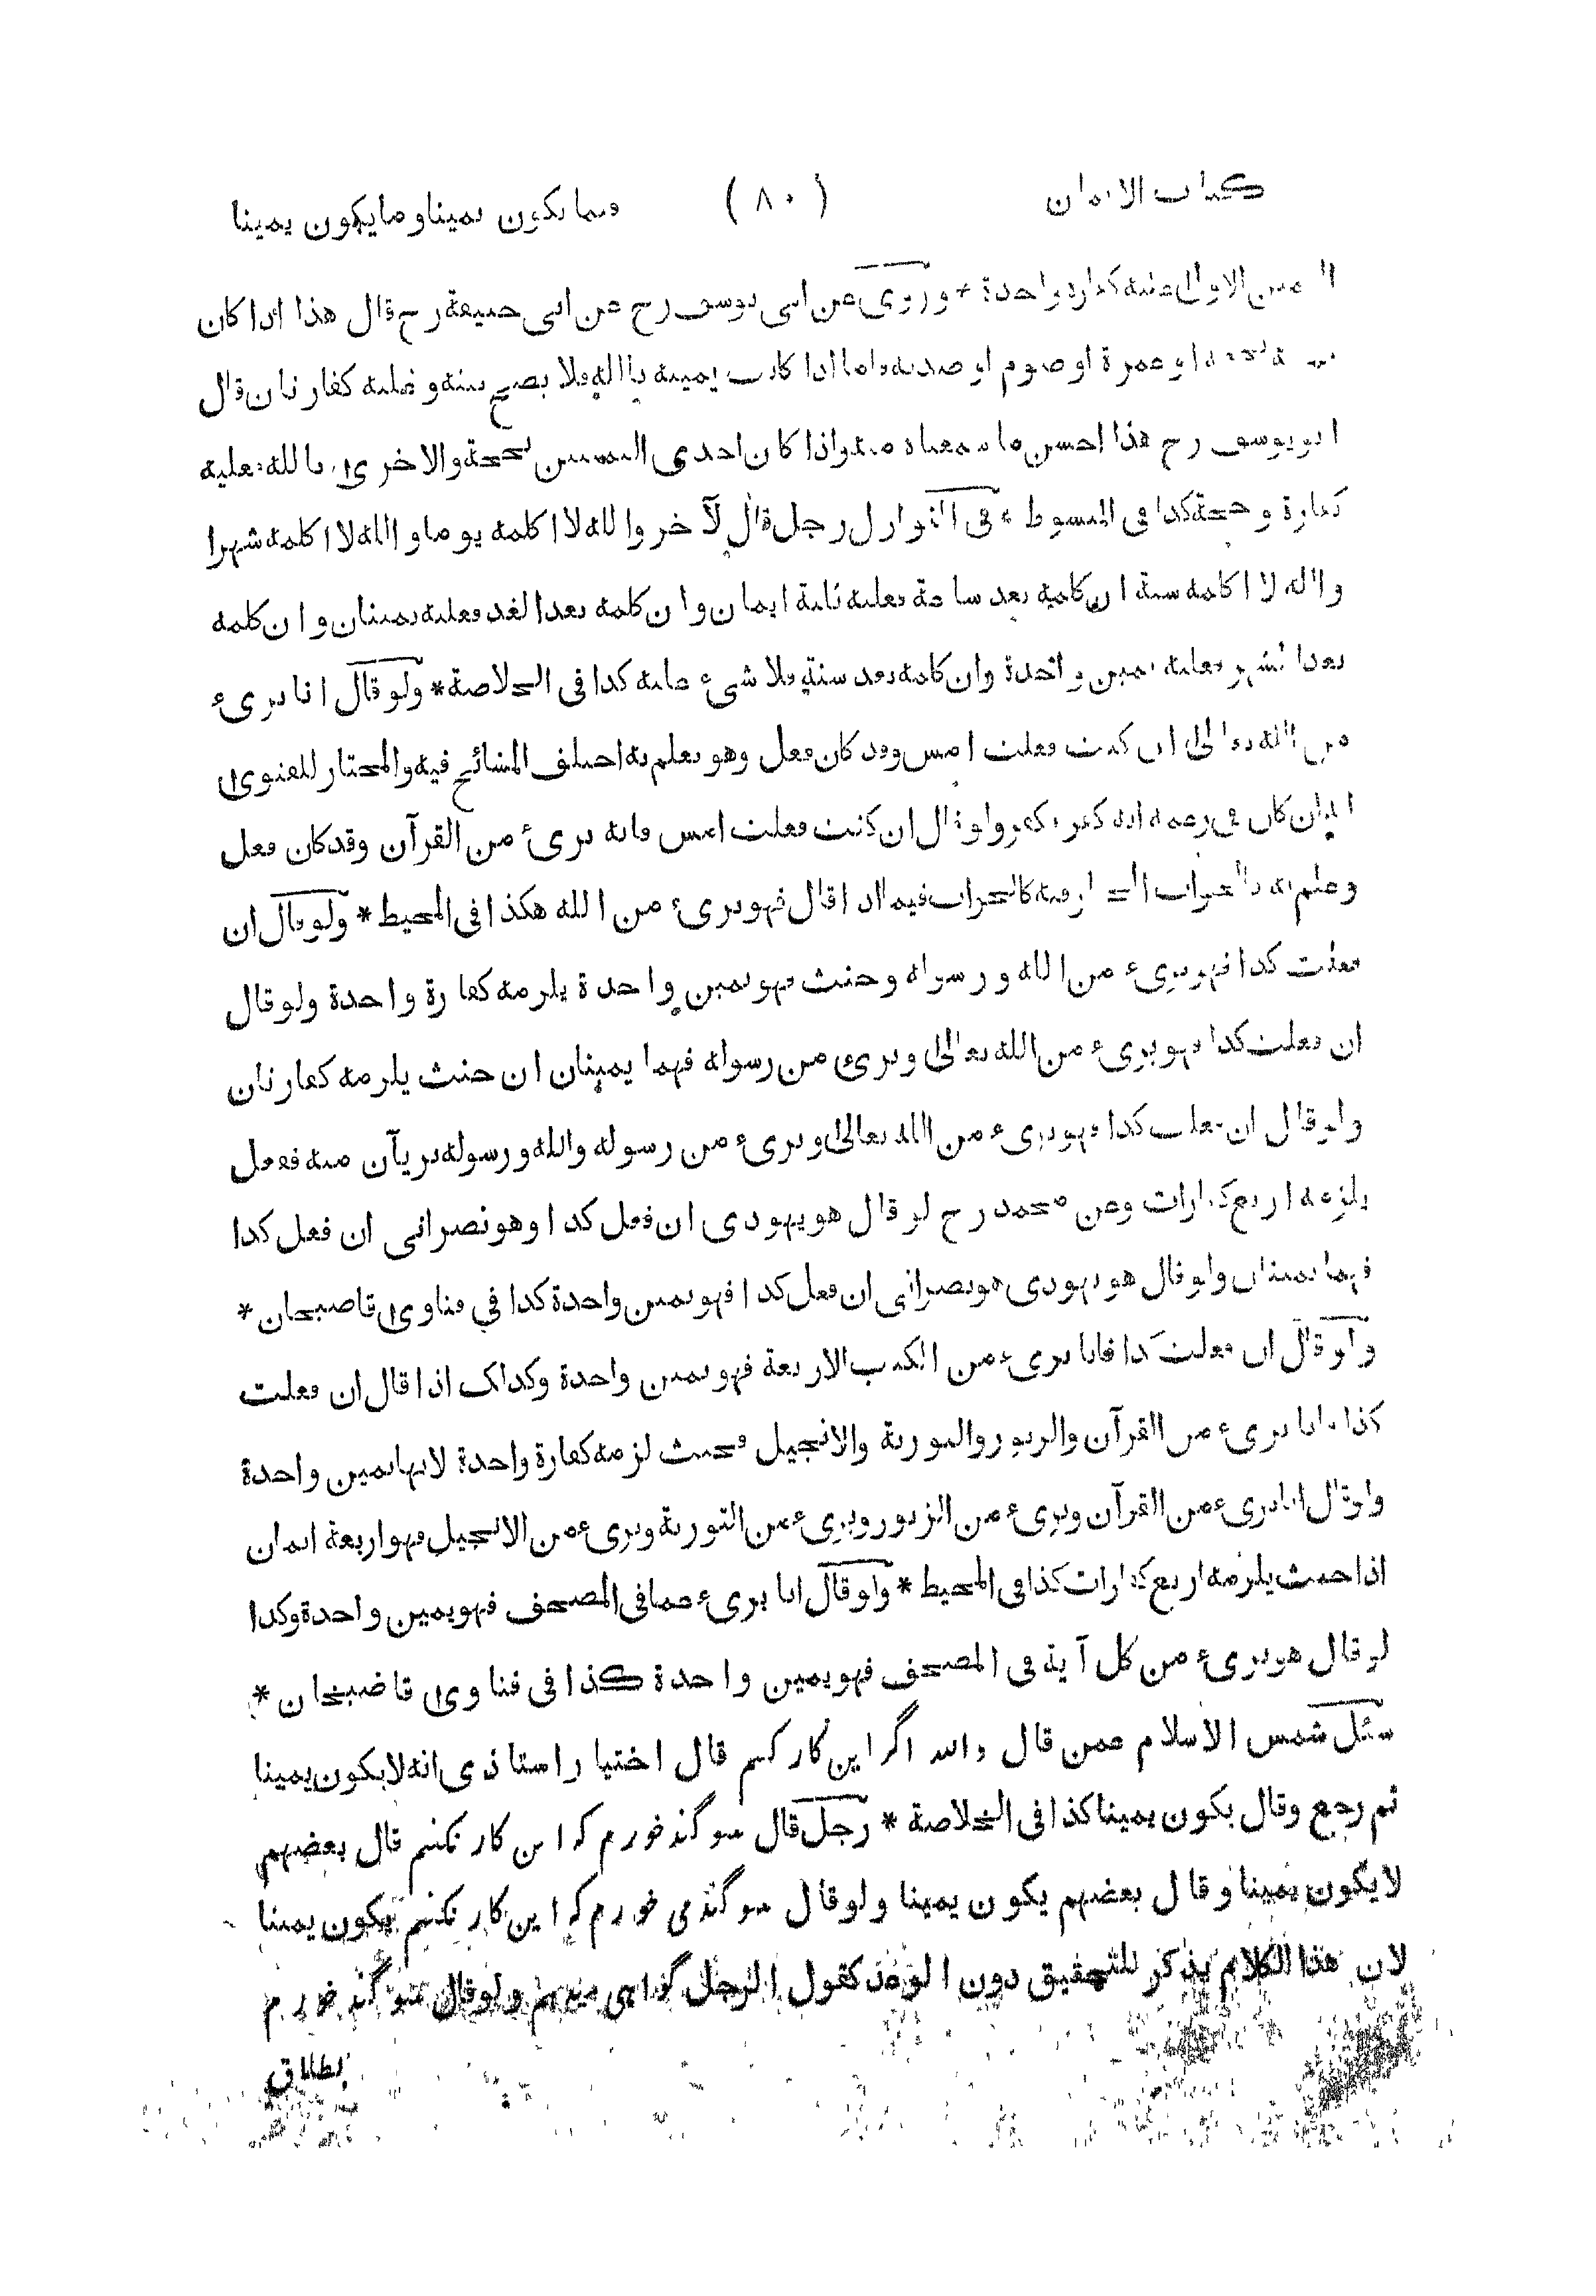 كتاب الايمان ( ٨٠ ) فيما يكون يمينا وما يكون يمينا
اليمين الاولى عليه كفارة واحدة * وروى عن ابى يوسف رح عن ابى حنيفة رح قال هذا اذا كان
بحجة او عمرة او صوم او صدقة واما اذا كانت يمينه بالله فلا يصح نيته وعليه كفارتان قال
ابو يوسف رح هذا احسن ما سمعناه منه واذا كان احدى اليمينين بحجة والاخرى بالله فعليه
كفارة وحجة كذا فى المبسوط * فى النوازل رجل قال لآخر والله لا اكلمه يوما والله لا اكلمه شهرا
والله لا اكلمه سنة ان كلمه بعد ساعة فعليه ثلثة ايمان وان كلمه بعد الغد فعليه يمينان وان كلمه
بعد الشهر فعليه يمين واحدة وان كلمه بعد سنة فلا شىء عليه كذا فى الخلاصة * ولو قال انا برىء
من الله تعالى ان كنت فعلت امس وقد كان فعل وهو يعلم به اختلف المشائخ فيه والمختار للفتوى
انه ان كان فى زعمه انه كفر يكفر ولو قال ان كنت فعلت امس فانه برىء من القرآن وقد كان فعل
وعلم به فالجواب المختار فيه كالجواب فيما اذا قال فهو برىء من الله هكذا فى المحيط * ولو قال ان
فعلت كذا فهو برىء من الله ورسوله وحنث فهو يمين واحدة يلزمه كفارة واحدة ولو قال
ان فعلت كذا فهو برىء من الله تعالى وبرىء من رسوله فهما يمينان ان حنث يلزمه كفارتان
ولو قال ان فعلت كذا فهو برىء من الله تعالى وبرىء من رسوله والله ورسوله بريآن منه ففعل
يلزمه اربع كفارات وعن محمد رح لو قال هو يهودى ان فعل كذا وهو نصرانى ان فعل كذا
فهما يمينان ولو قال هو يهودى هو نصرانى ان فعل كذا فهو يمين واحدة كذا فى فتاوى قاضيخان *
ولو قال ان فعلت كذا فانا برىء من الكتب الاربعة فهو يمين واحدة وكذلك اذا قال ان فعلت
كذا فانا برىء من القرآن والزبور والتورىة والانجيل فحنث لزمه كفارة واحدة لانها يمين واحدة
ولو قال انا برىء من القرآن وبرىء من الزبور وبرىء من التورىة وبرىء من الانجيل فهو اربعة ايمان
اذا حنث يلزمه اربع كفارات كذا فى المحيط * ولو قال انا برىء مما فى المصحف فهو يمين واحدة وكذا
لو قال هو برىء من كل آية فى المصحف فهو يمين واحدة كذا فى فتاوى قاضيخان *
سئل شمس الاسلام عمن قال والله اگر اين كار كنم قال اختيار استاذى انه لا يكون يمينا
ثم رجع وقال يكون يمينا كذا فى الخلاصة * رجل قال سوگند خورم كه اين كار نكنم قال بعضهم
لا يكون يمينا وقال بعضهم يكون يمينا ولو قال سوگند مى خورم كه اين كار نكنم يكون يمينا
لان هذا الكلام يذكر للتحقيق دون الوعد كقول الرجل گواهى ميدهم ولو قال سوگند خورم
بطلاق